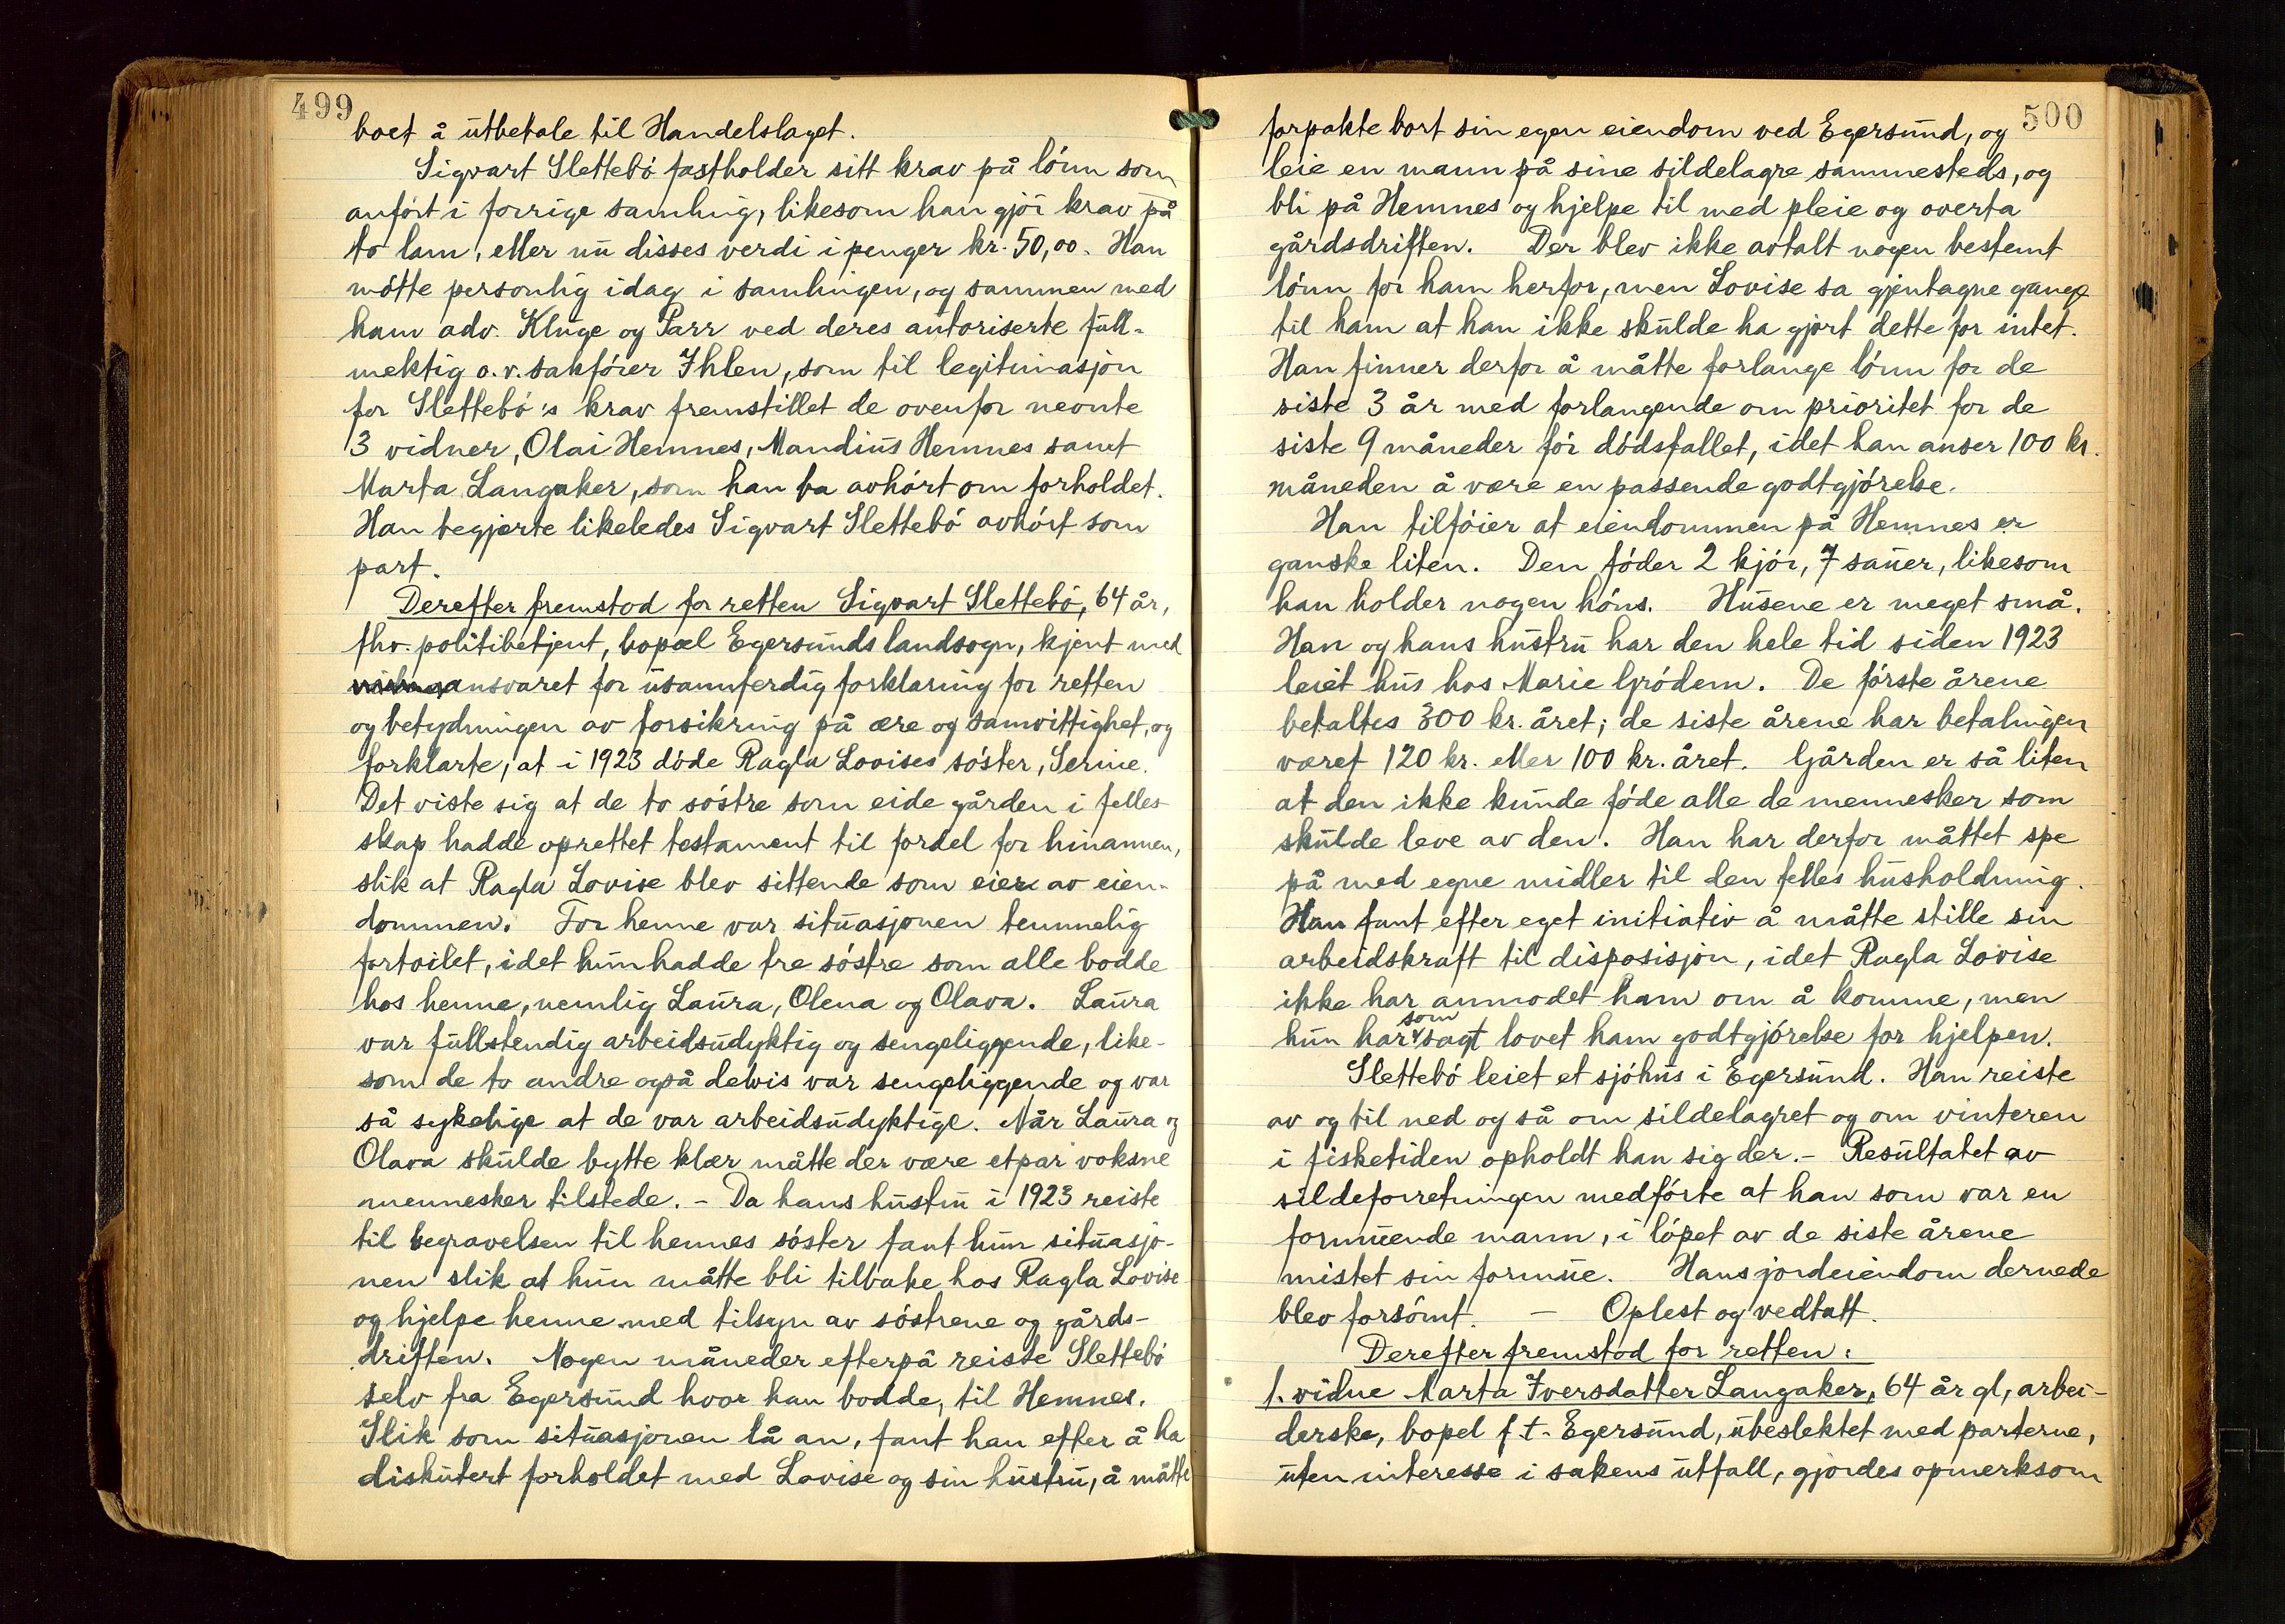 499
boet å utbetale til Handelslaget.
Sigvart Slettebó fastholder sitt krav på lónn som
anfórt i forrige samling, likesom han gjór krav på
to lam, eller nu disses verdi i penger kr. 50,00. Han
mótte personlig idag i samlingen, og sammen med
ham adv. Kluge og Parr ved deres autoriserte full-
mektig o.r. sakfórer Ihlen, som til legitimasjon
for Slettebó's krav fremstillet de ovenfor nevnte
3 vidner, Olai Hemnes, Mandius Hemnes samt
Marta Langaker, som han ba avhórt om forholdet.
Han begjærte likeledes Sigvart Slettebó avhórt som
part.
Derefter fremstod for retten Sigvart Slettebó, 64 år,
fhv. politibetjent, bopæl Egersunds landsogn, kjent med
ansvaret for usannferdig forklaring for retten
og betydningen av forsikring på ære og samvittighet, og
forklarte, at i 1923 dóde Ragla Lovises sóster, Serine.
Det viste sig at de to sóstre som eide gården i felles
skap hadde oprettet testament til fordel for hinannen,
slik at Ragla Lovise blev sittende som eier av eien-
dommen. For henne var situasjonen temmelig
fortvilet, idet hun hadde tre sóstre som alle bodde
hos henne, nemlig Laura, Olena og Olava. Laura
var fullstendig arbeidsudyktig og sengeliggende, like-
som de to andre også delvis var sengeliggende og var
så sykelige at de var arbeidsudyktige. Når Laura og
Olava skulde bytte klær måtte der være et par voksne
mennesker tilstede. - Da hans hustru i 1923 reiste
til begravelsen til hennes sóster fant hun situasjo-
nen slik at hun måtte bli tilbake hos Ragla Lovise
og hjelpe henne med tilsyn av sóstrene og gårds-
driften. Nogen måneder efterpå reiste Slettebó
selv fra Egersund hvor han bodde, til Hemnes.
Slik som situasjonen lå an, fant han efter å ha
diskutert forholdet med Lovise og sin hustru, å måtte
500
forpakte bort sin egen eiendom ved Egersund, og
leie en mann på sine sildelagre sammesteds, og
bli på Hemnes og hjelpe til med pleie og overta
gårdsdriften. Der blev ikke avtalt nogen bestemt
lónn for ham herfor, men Lovise sa gjentagne gange
til ham at han ikke skulde ha gjort dette for intet.
Han finner derfor å måtte forlange lónn for de
siste 3 år med forlangende om prioritet for de
siste 9 måneder fór dódsfallet, idet han anser 100 kr.
måneden å være en passende godtgjórelse.
Han tilfóier at eiendommen på Hemnes er
ganske liten. Den fóder 2 kjór, 7 sauer, likesom
han holder nogen hóns. Husene er meget små.
Han og hans hustru har den hele tid siden 1923
leiet hus hos Marie Gródem. De fórste årene
betaltes 300 kr. året; de siste årene har betalingen
været 120 kr. eller 100 kr. året. Gården er så liten
at den ikke kunde fóde alle de mennesker som
skulde leve av den. Han har derfor måttet spe
på med egne midler til den felles husholdning.
Han fant efter eget initiativ å måtte stille sin
arbeidskraft til disposisjon, idet Ragla Lovise
ikke har anmodet ham om å komme, men
hun har som sagt lovet ham godtgjórelse for hjelpen.
Slettebó leiet et sjóhus i Egersund. Han reiste
av og til ned og så om sildelagret og om vinteren
i fisketiden opholdt han sig der. - Resultatet av
sildeforretningen medfórte at han som var en
formuende mann, i lópet av de siste årene
mistet sin formue. Hans jordeiendom dernede
blev forsómt. - Oplest og vedtatt.
Derefter fremstod for retten:
1. vidne Marta Iversdatter Langaker, 64 år gl, arbei-
derske, bopel f.t. Egersund, ubeslektet med parterne,
uten interesse i sakens utfall, gjordes opmerksom